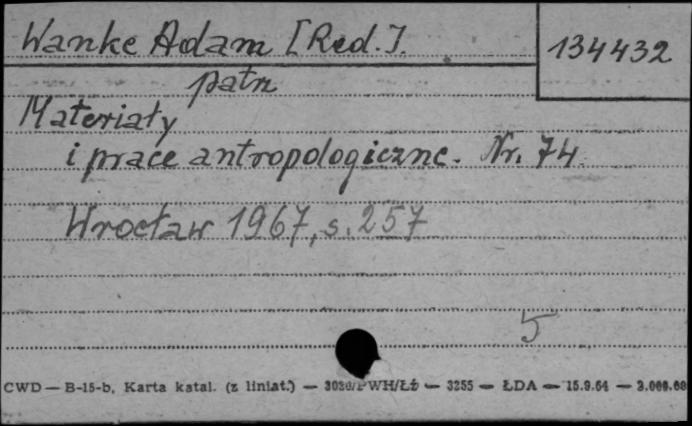 Wanke Adam [Red.].
134432
patrz
Materiały
i prace antropologiczne. Nr. 74
Wrocław 1967, s. 257
5
CWD — B-15-b, Karta katal. (z liniat.) — /PWH/Łź — 3255 — ŁDA — 15.9.64 —